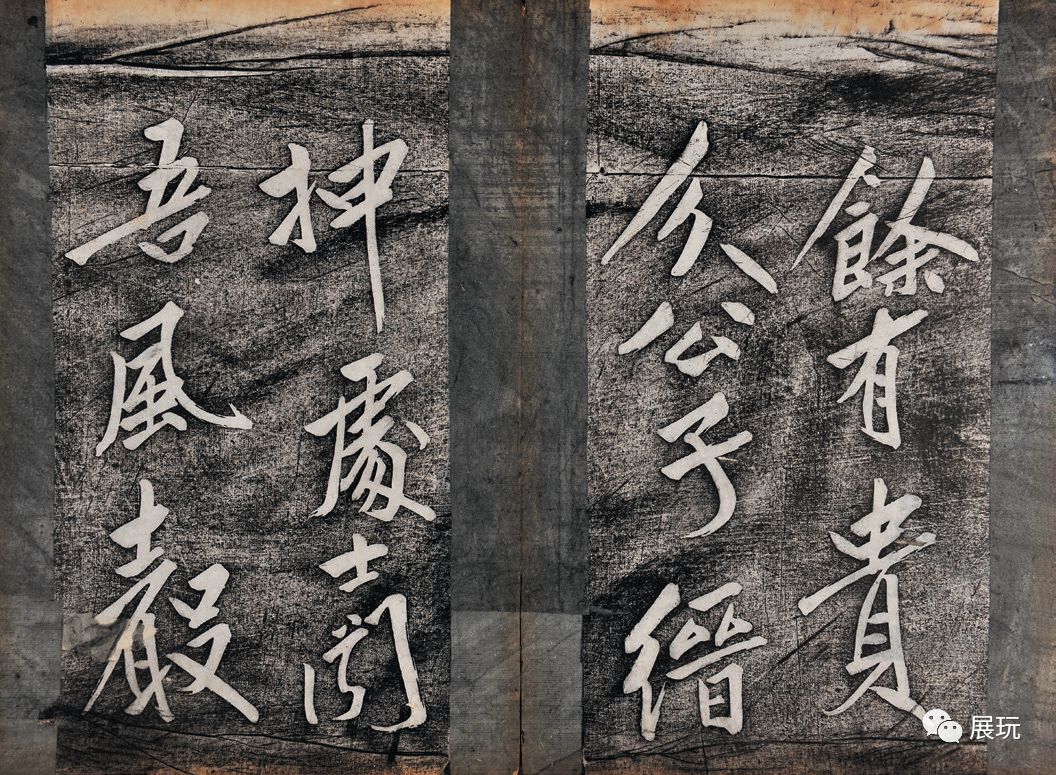 餘有貴
介公子縉
抻處士聞
吾風聲
展玩